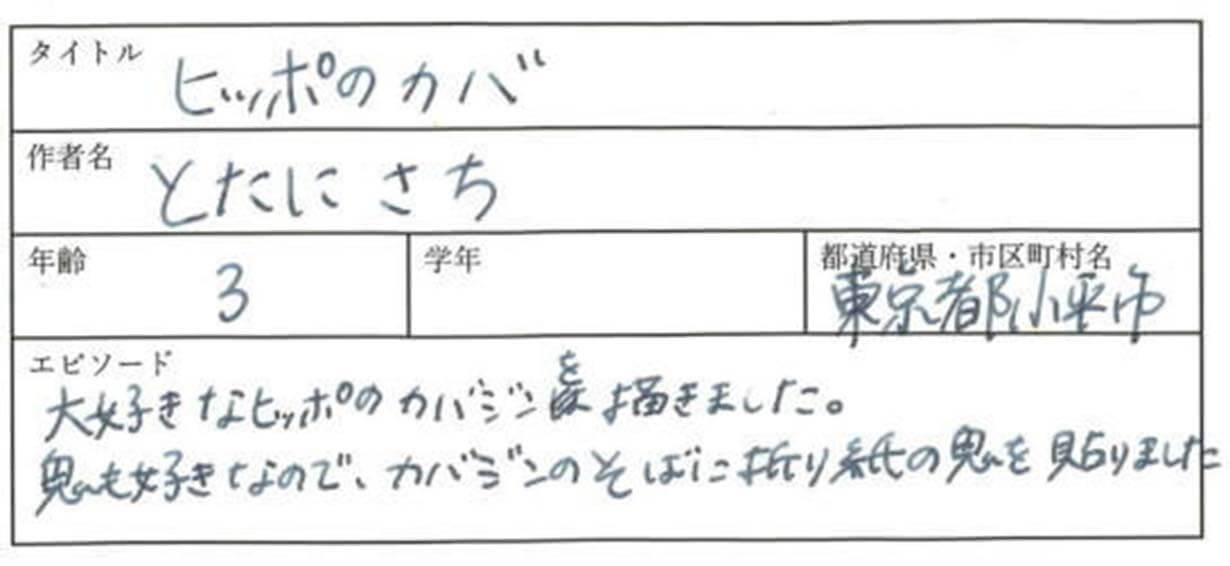 タイトル
ヒッポのカバ
作者名
とたに さち
年齢
3
学年
都道府県・市区町村名
東京都小平市
エピソード
大好きなヒッポのカバジンを描きました。
鬼も好きなので、カバジンのそばに折り紙の鬼を貼りました